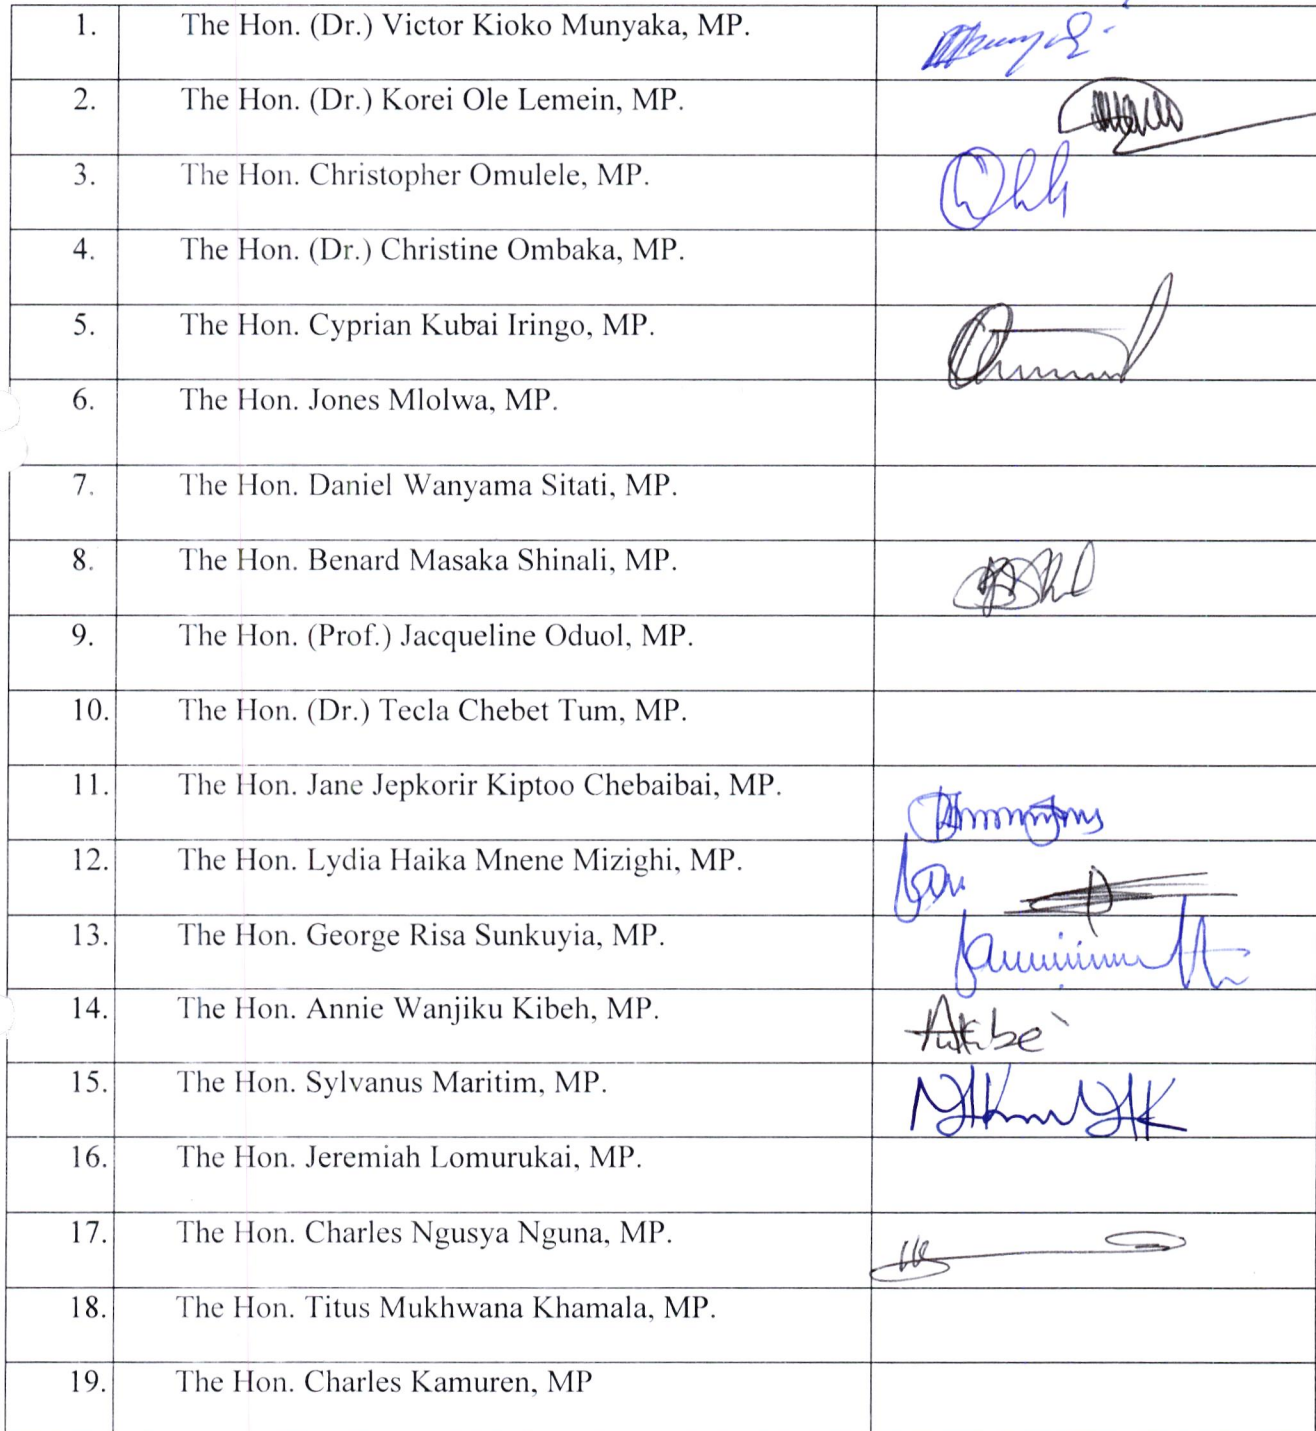 1. The Hon. (Dr.) Victor Kioko Munyaka, MP.
2. The Hon. (Dr.) Korei Ole Lemein, MP.
3. The Hon. Christopher Omulele, MP.
4. The Hon. (Dr.) Christine Ombaka, MP.
5. The Hon. Cyprian Kubai Iringo, MP.
6. The Hon. Jones Mlolwa, MP.
7. The Hon. Daniel Wanyama Sitati, MP.
8. The Hon. Benard Masaka Shinali, MP.
9. The Hon. (Prof.) Jacqueline Oduol, MP.
10. The Hon. (Dr.) Tecla Chebet Tum, MP.
11. The Hon. Jane Jepkorir Kiptoo Chebaibai, MP.
12. The Hon. Lydia Haika Mnene Mizighi, MP.
13. The Hon. George Risa Sunkuyia, MP.
14. The Hon. Annie Wanjiku Kibeh, MP.
15. The Hon. Sylvanus Maritim, MP.
16. The Hon. Jeremiah Lomurukai, MP.
17. The Hon. Charles Ngusya Nguna, MP.
18. The Hon. Titus Mukhwana Khamala, MP.
19. The Hon. Charles Kamuren, MP